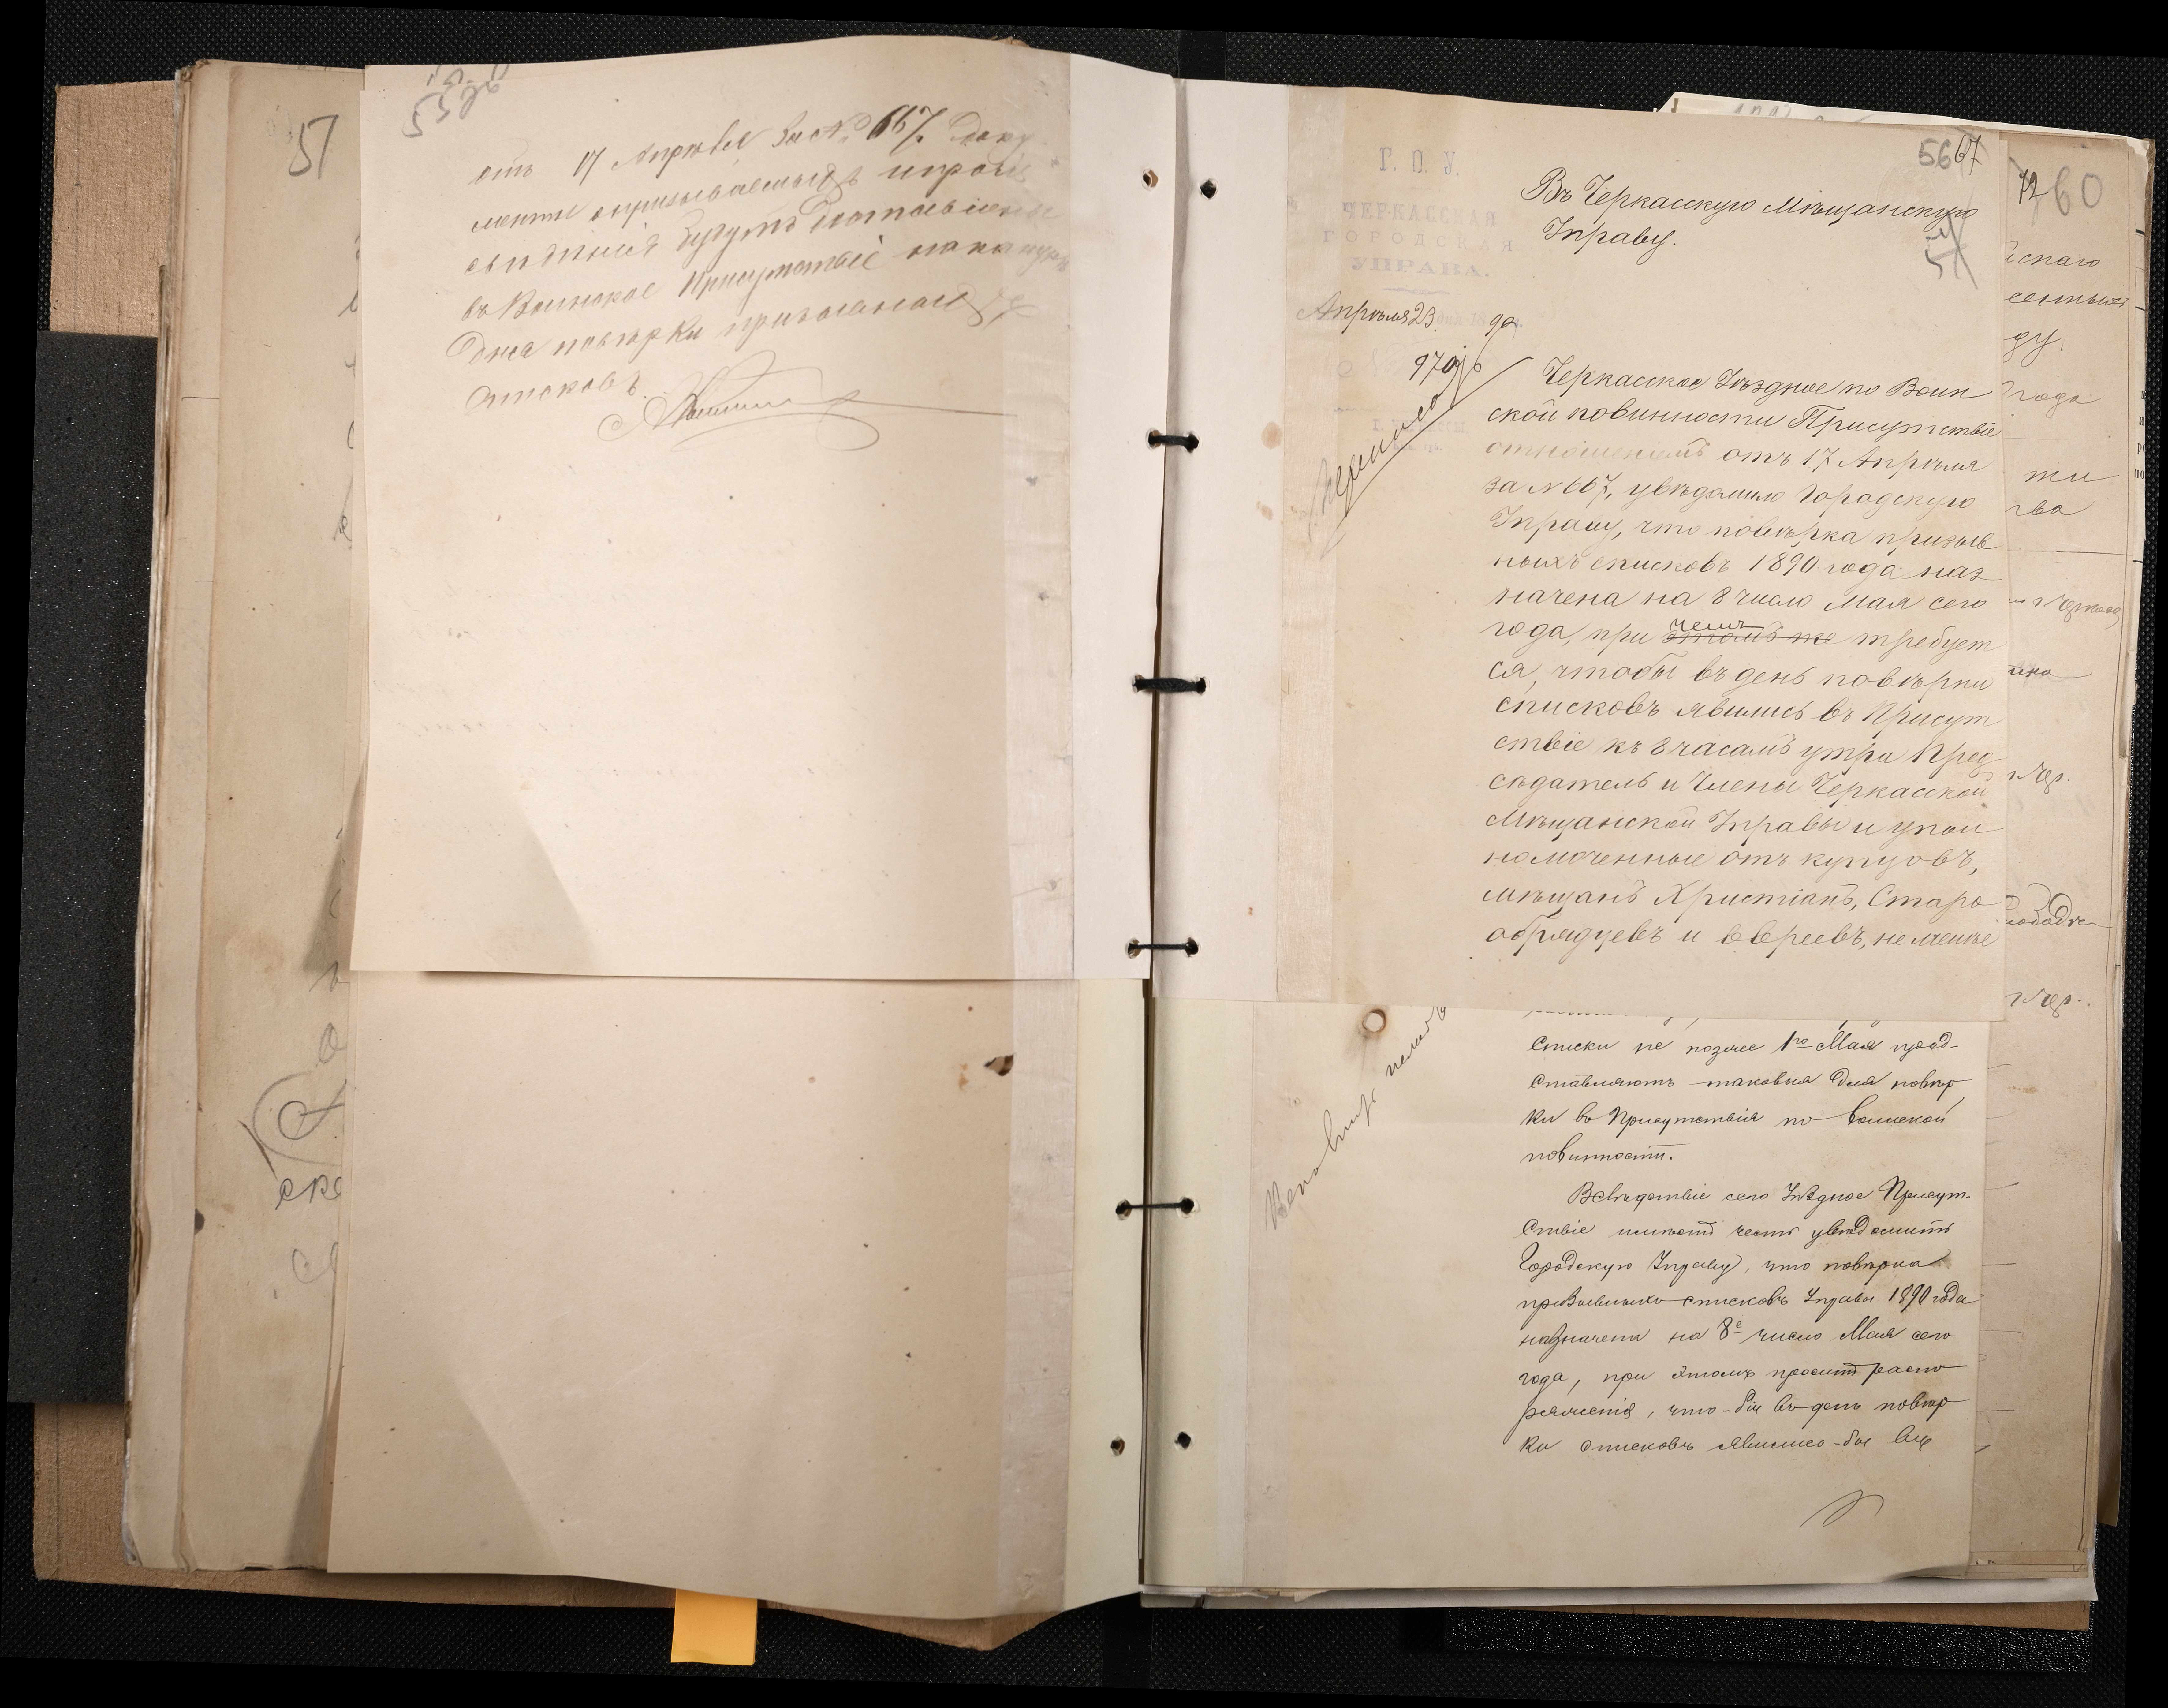 57
55 об
отъ 17 Апрѣля за № 667. Доку
менты о призываемыхъ и проч
свѣдѣнія будутъ доставлены
въ Воинское Присутствіе наканунѣ
дня повѣрки призывныхъ
списковъ.
56 67
Г. О. У.
ЧЕРКАССКАЯ
ГОРОДСКАЯ
УПРАВА.
Апрѣля 23. 90
970
Въ Черкасскую Мѣщанскую
Управу.
Черкасское Уѣздное по Воин
ской повинности Присутствіе
отношеніемъ отъ 17 Апрѣля
за № 667, увѣдомило Городскую
Управу, что повѣрка призыв
ныхъ списковъ 1890 года наз
начена на 8 число Мая сего
года, при чемъ этомъ же требует
ся, чтобы въ день повѣрки
списковъ явились въ Присут
ствіе къ 8 часамъ утра Пред
сѣдатель и Члены Черкасской
Мѣщанской Управы и упол
номоченные отъ купцовъ,
мѣщанъ Христіанъ, Старо
обрядцевъ и Евреевъ, не менѣе
Списки не позже 1го Мая пред-
ставляютъ таковыя для повѣр
ки въ Присутствія по воинской
повинности.
Вслѣдствіе сего Уѣздное Присут-
ствіе имѣетъ честь увѣдомить
Городскую Управу, что повѣрка
призывныхъ списковъ Управы 1890 года
назначена на 8е число Мая сего
года, при этомъ проситъ распо
ряженія, что-бы въ день повѣр
ки списковъ явились-бы въ
72 60
скаго
ду.
года
ти
ства
г. Чер.
г. Чер.